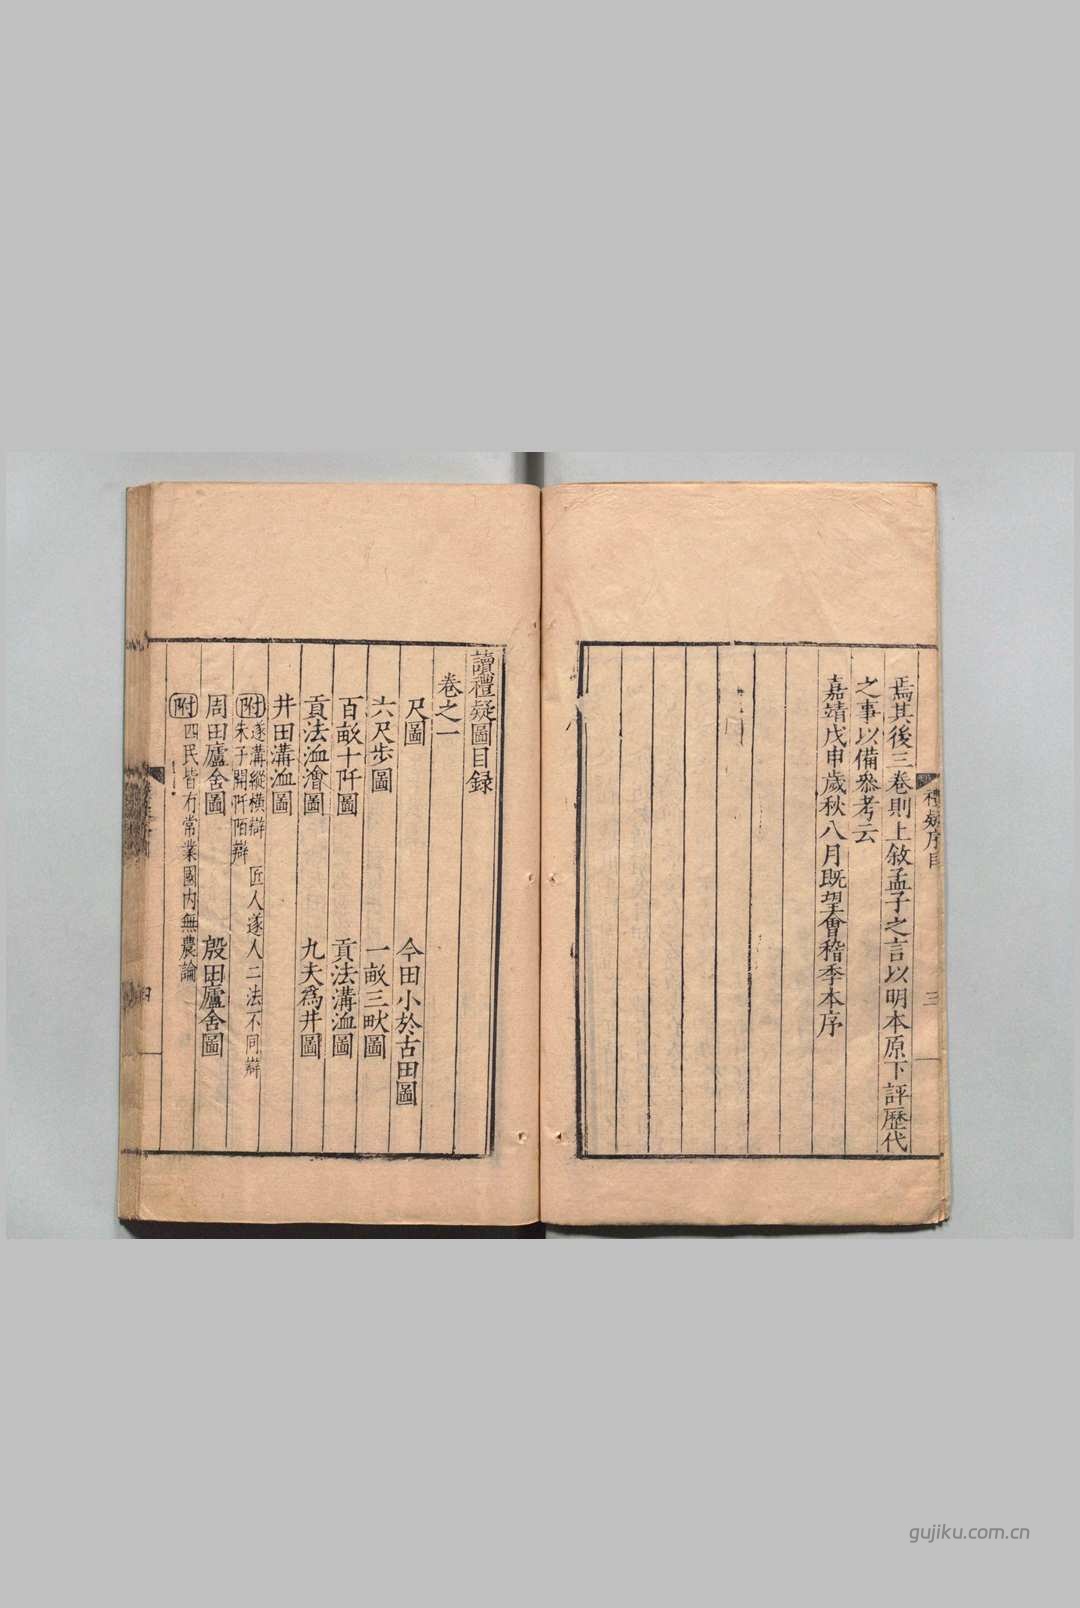 焉其後三卷則上敘孟子之言以明本原下評歷代
之事以備叅考云
嘉靖戊申歲秋八月既望會稽季本序
三
讀禮疑圖目録
卷之一
尺圖　今田小於古田圖
六尺步圖　一畝三畎圖
百畝十阡圖　貢法溝洫圖
貢法洫澮圖　九夫爲井圖
井田溝洫圖
附　遂溝縱橫辯　匠人遂人二法不同辯
朱子開阡陌辯
周田廬舍圖　殷田廬舍圖
附　四民皆有常業國内無農論
四
gujiku.com.cn